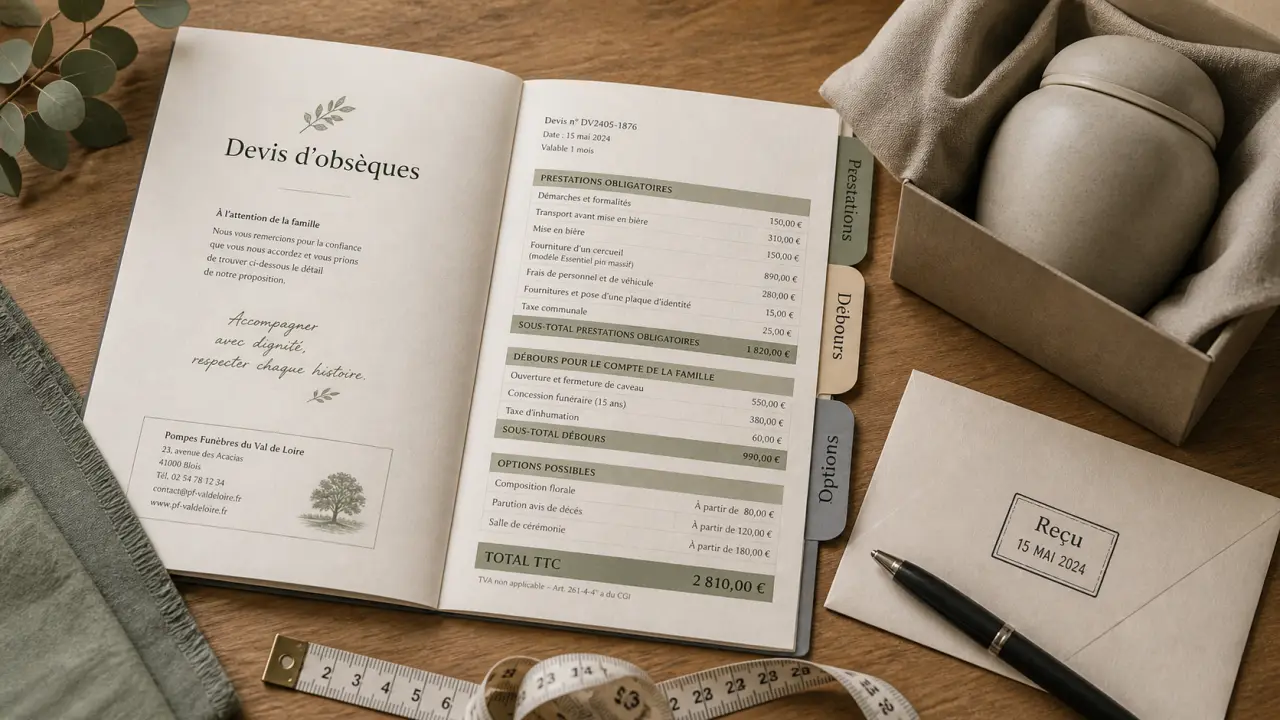 Devis d'obsèques
À l'attention de la famille
Nous vous remercions pour la confiance
que vous nous accordez et vous prions
de trouver ci-dessous le détail
de notre proposition.
Accompagner
avec dignité,
respecter chaque histoire.
Pompes Funèbres du Val de Loire
23, avenue des Acacias
41000 Blois
Tél. 02 54 78 12 34
contact@pf-valdeloire.fr
www.pf-valdeloire.fr
Devis n° DV2405-1876
Date : 15 mai 2024
Valable 1 mois
PRESTATIONS OBLIGATOIRES
Démarches et formalités 150,00 €
Transport avant mise en bière 310,00 €
Mise en bière 150,00 €
Fourniture d'un cercueil
(modèle Essentiel pin massif) 890,00 €
Frais de personnel et de véhicule 280,00 €
Fournitures et pose d'une plaque d'identité 15,00 €
Taxe communale 25,00 €
SOUS-TOTAL PRESTATIONS OBLIGATOIRES 1 820,00 €
DÉBOURS POUR LE COMPTE DE LA FAMILLE
Ouverture et fermeture de caveau 550,00 €
Concession funéraire (15 ans) 380,00 €
Taxe d'inhumation 60,00 €
SOUS-TOTAL DÉBOURS 990,00 €
OPTIONS POSSIBLES
Composition florale À partir de 80,00 €
Parution avis de décès À partir de 120,00 €
Salle de cérémonie À partir de 180,00 €
TOTAL TTC 2 810,00 €
TVA non applicable – Art. 261-4-4° a du CGI
Prestations
Débours
Options
Reçu
15 MAI 2024
2 3 4 5 6
23 23 22